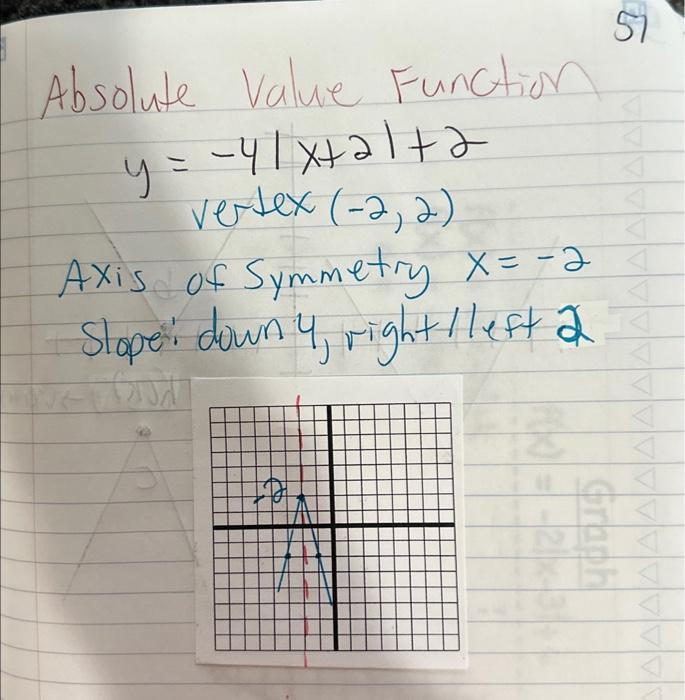 57
Absolute Value Function
y = -4|x+2|+2
vertex (-2, 2)
Axis of Symmetry x = -2
Slope: down 4, right/left 2
-2
Graph
f(x) = -2|x-3|+